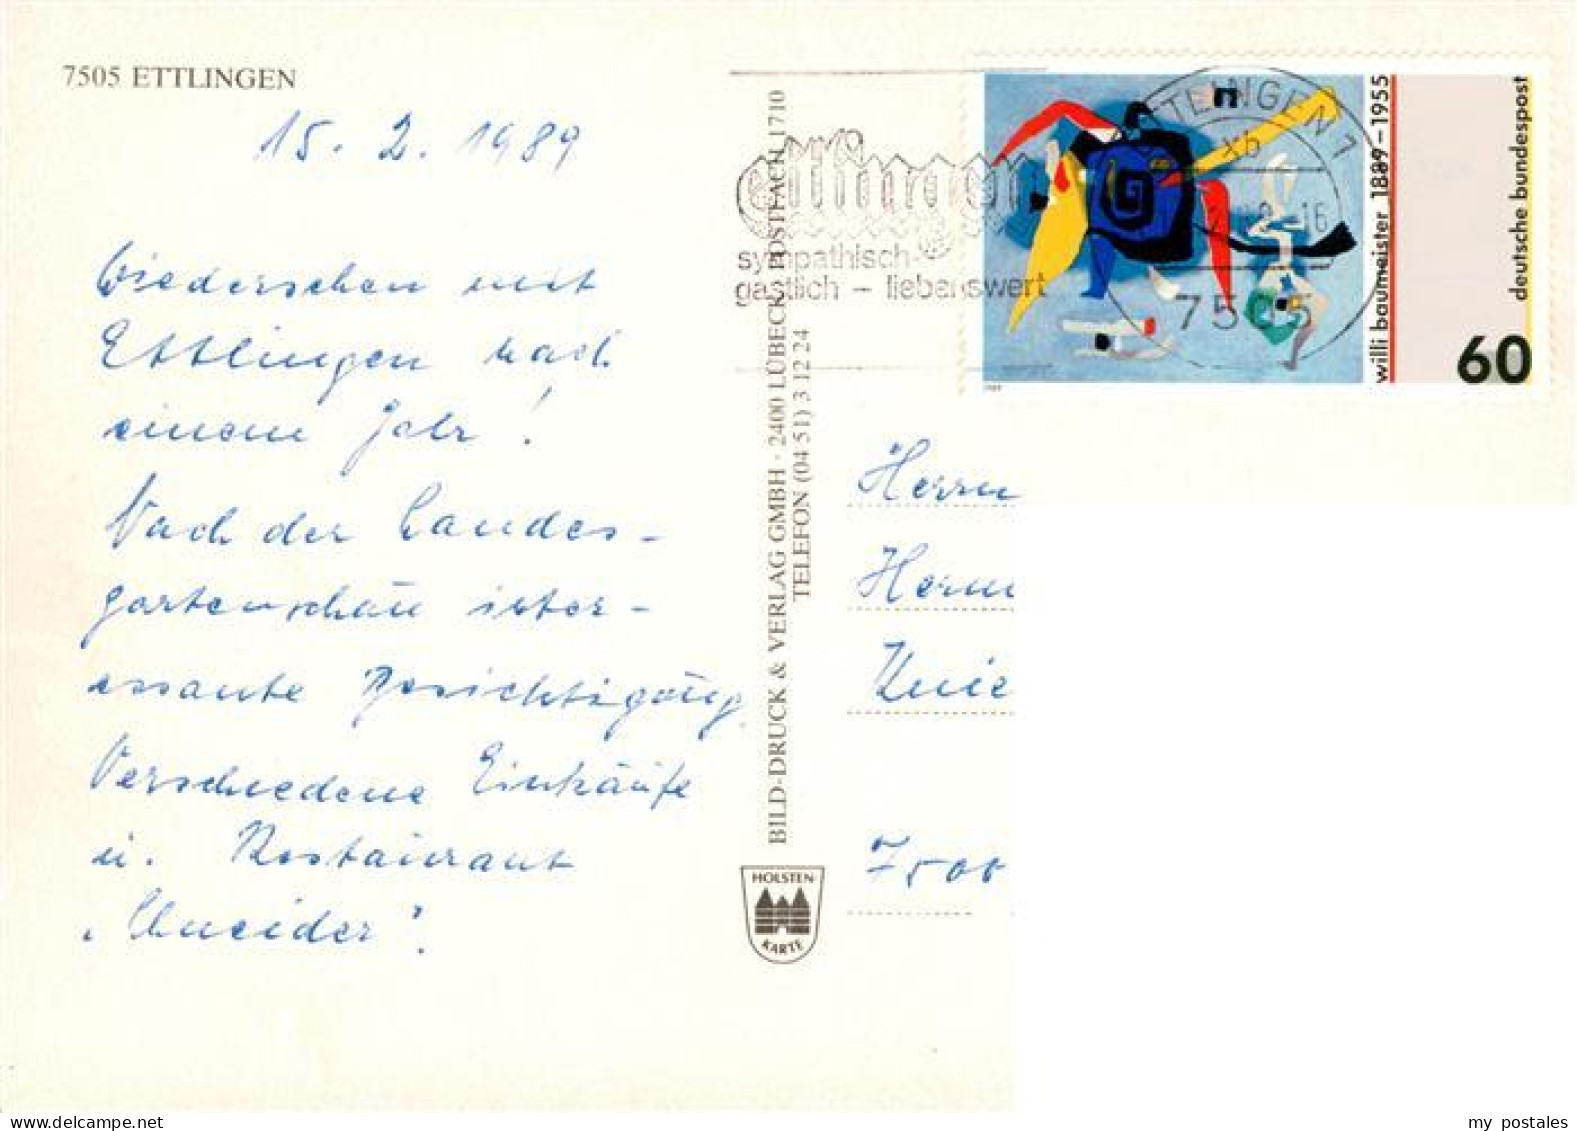 7505 ETTLINGEN
15. 2. 1989
Wiedersehen mit
Ettlingen nach
einem Jahr!
Nach der Landes-
gartenschau inter-
essante Besichtigung.
Verschiedene Einkäufe
u. Restaurant
"Schneider".
BILD-DRUCK & VERLAG GMBH · 2400 LÜBECK, POSTFACH 1710
TELEFON (04 51) 3 12 24
HOLSTEN-
KARTE
ettlingen
sympathisch-
gastlich – liebenswert
ETTLINGEN 1
xb
-16
7505
willi baumeister 1889–1955
deutsche bundespost
60
Herrn
7500
delcampe.net
my_postales